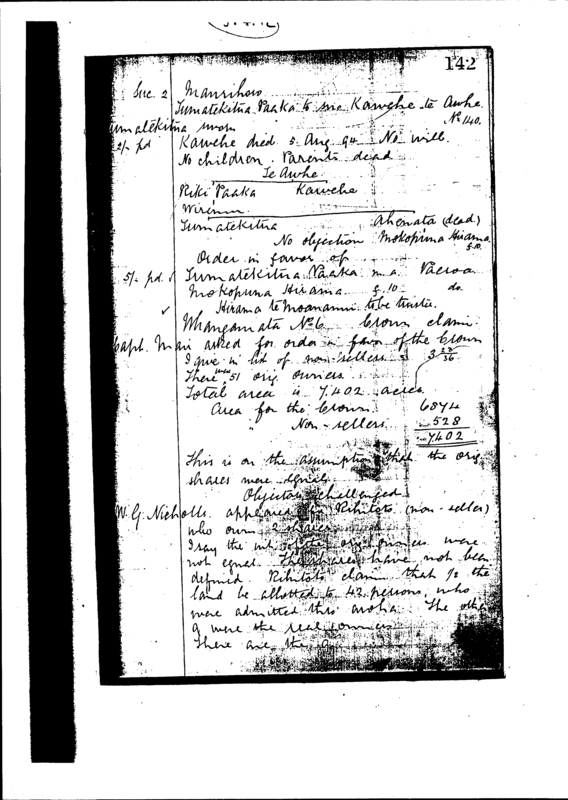 142
Suc. 2 Maurihoro
Tumatekitua Paaka to suc Kawehe te Awhe.
No 140.
Tumatekitua sworn
2/- pd Kawehe died 5 Aug 94 No will.
No children. Parents dead
Te Awhe
Riki Paaka Kawehe
Wirimu
Tumatekitua Ahenata (dead)
No objection Mokopuna Hirama
f. 10.
Order in favor of
5/- pd. Tumatekitua Paaka m.a. Paeroa
Mokopuna Hirama f. 10 do
✓ Hirama te Moananui to be trustee.
Whangamata No 6 Crown claim
Capt. Mair asked for order in favor of the Crown
I give in list of non-sellers = 3 22/36
There were 51 orig. owners.
Total area is 7,402 acres
Area for the Crown 6874
" Non-sellers 528
7402
This is on the assumption that the orig.
shares were equal
Objectors challenged
W. G. Nicholls. appeared for Rihitoto (non-seller)
who owns 2 shares
I say the of the orig owners were
not equal. The shares have not been
defined. Rihitoto's claim that 1/2 the
land be allotted to 42 persons, who
were admitted thro' aroha. The other
9 were the real owners
There are the